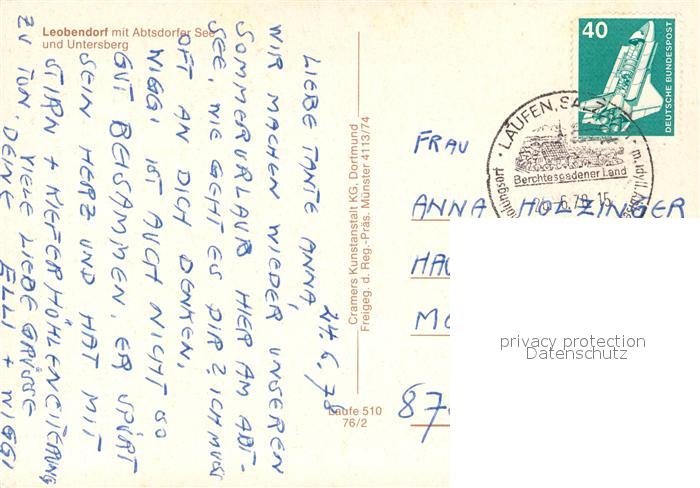 Leobendorf mit Abtsdorfer See
und Untersberg
24.6.78
LIEBE TANTE ANNA,
WIR MACHEN WIEDER UNSEREN
SOMMERURLAUB HIER AM ABT-
SEE, WIE GEHT ES DIR? ICH MUSS
OFT AN DICH DENKEN,
WIGGI IST AUCH NICHT SO
GUT BEISAMMEN, ER SPÜRT
SEIN HERZ UND HAT MIT
STIRN + KIEFERHÖHLENEITERUNG
ZU TUN,
VIELE LIEBE GRÜSSE
DEINE
ELLI + WIGGI
Cramers Kunstanstalt KG, Dortmund
Freigeg. d. Reg.-Präs. Münster 4113/74
Laufe 510
76/2
40
DEUTSCHE BUNDESPOST
LAUFEN, SALZACH
Berchtesgadener Land
6.78-15
FRAU
ANNA HOLZINGER
HAU
MO
87
privacy protection
Datenschutz